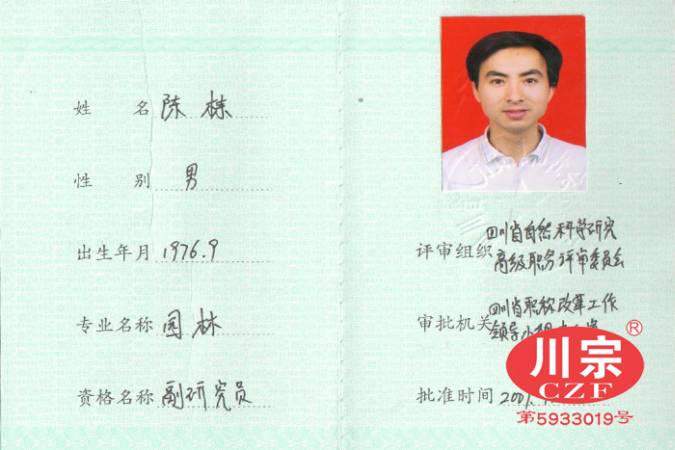 姓 名 陈栋
性 别 男
出生年月 1976.9
专业名称 园林
资格名称 副研究员
评审组织 四川省自然科学研究
高级职务评审委员会
审批机关 四川省职称改革工作
领导小组
批准时间 200
川宗®
CZF
第5933019号